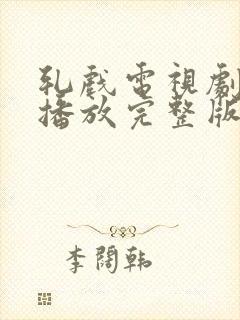 乳戲電視劇
播放完整版
李闊韓